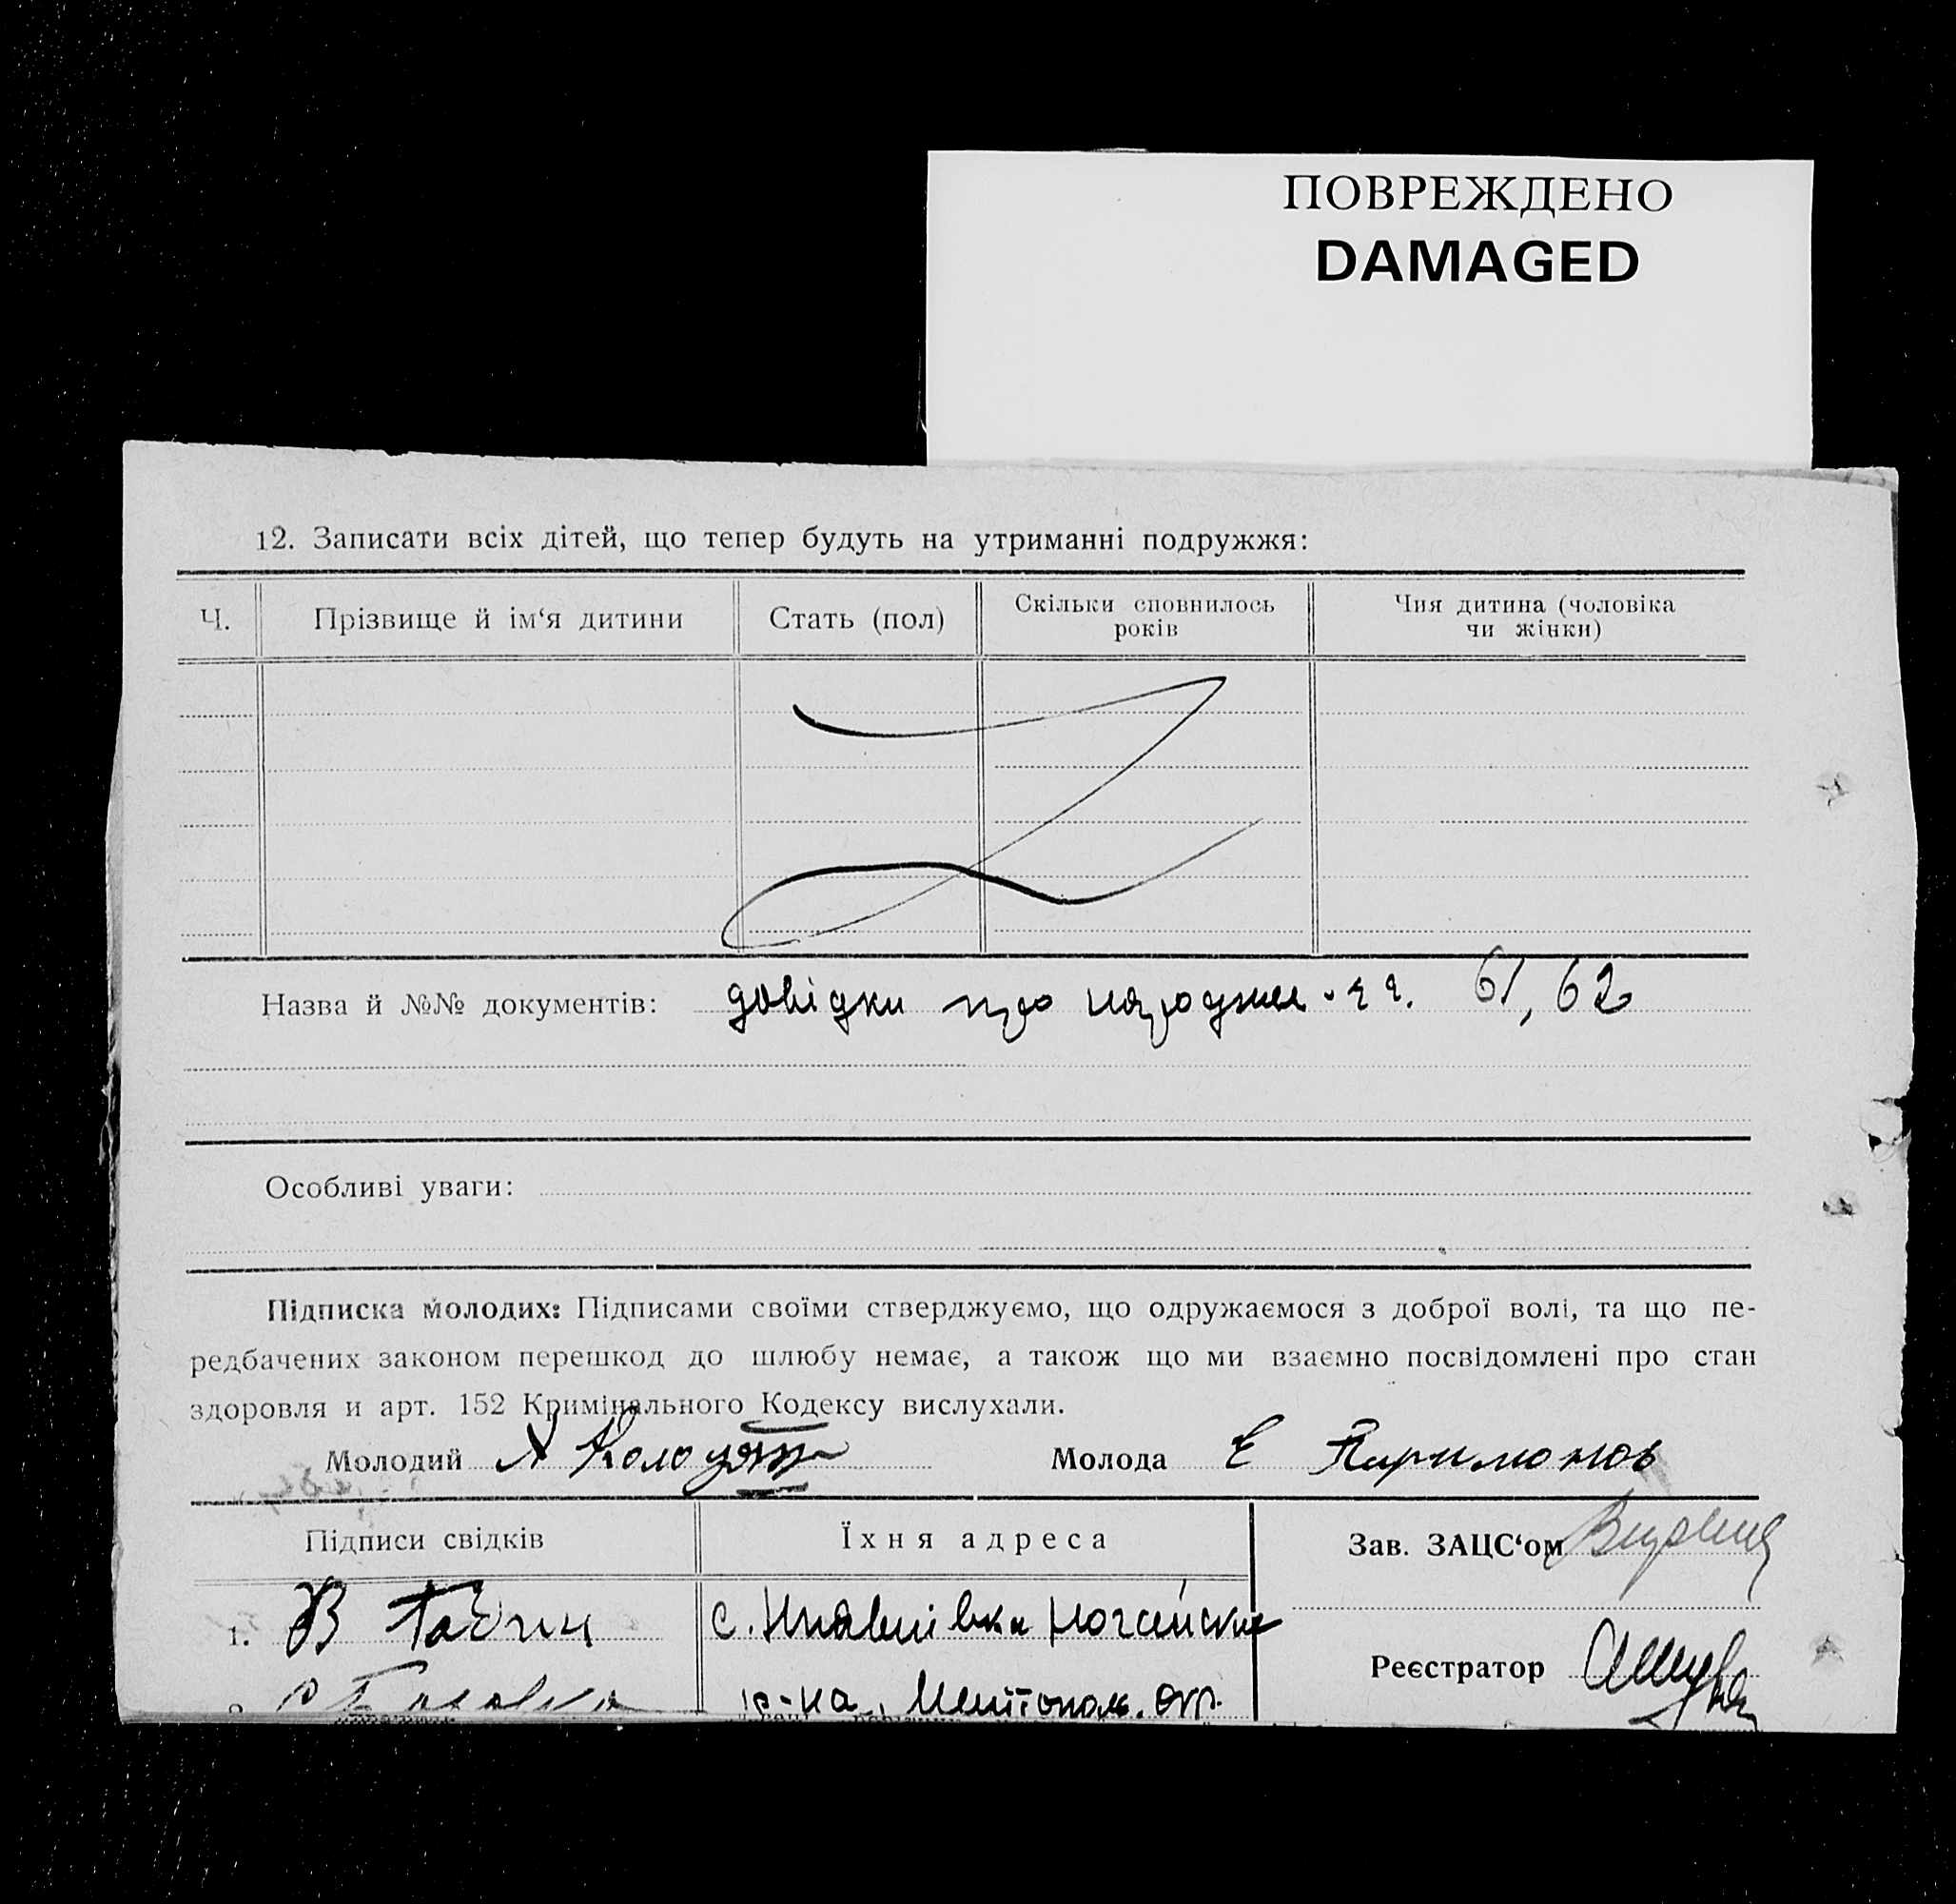 ПОВРЕЖДЕНО
DAMAGED
12. Записати всіх дітей, що тепер будуть на утриманні подружжя:
Ч. Прізвище й ім‘я дитини Стать (пол) Скільки сповнилось років Чия дитина (чоловіка чи жінки)
Назва й №№ документів: довідки про народжен. чч. 61, 62
Особливі уваги:
Підписка молодих: Підписами своїми стверджуємо, що одружаємося з доброї волі, та що пе-
редбачених законом перешкод до шлюбу немає, а також що ми взаємно посвідомлені про стан
здоровля и арт. 152 Кримінального Кодексу вислухали.
Молодий А Молода Е
Підписи свідків Їхня адреса Зав. ЗАЦС‘ом
1. В с.
р-на, окр.
Реєстратор